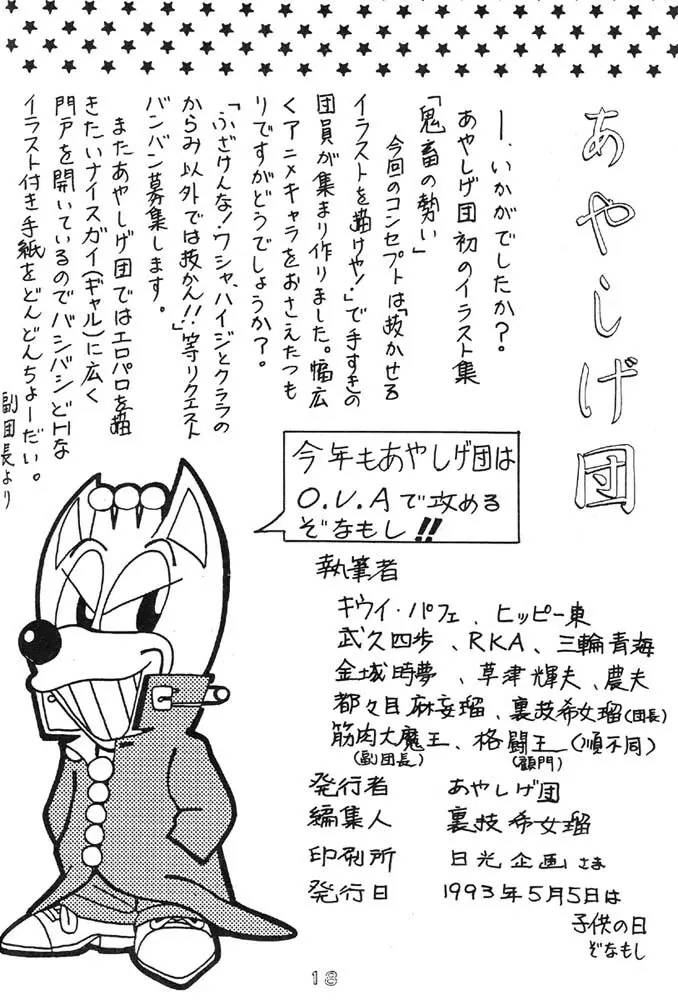 あやしげ団
ー、いかがでしたか?
あやしげ団初のイラスト集
「鬼畜の勢い」
今回のコンセプトは「抜かせる
イラストを描けや!」で手すきの
団員が集まり作りました。幅広
くアニメキャラをおさえたつも
りですがどうでしょうか?。
「ふざけんな!ワシャ、ハイジとクララの
からみ以外では抜かん!!」等リクエスト
バンバン募集します。
またあやしげ団ではエロパロを描
きたいナイスガイ(ギャル)に広く
門戸を開いているのでバシバシどHな
イラスト付き手紙をどんどんちょーだい。
副団長より
今年もあやしげ団は
O.V.Aで攻める
ぞなもし!!
執筆者
キウイ・パフェ、ヒッピー東
武久四歩、RKA、三輪青海
金城時夢、草津輝夫、農夫
都々目麻妄瑠、裏技希女瑠(団長)
筋肉大魔王、格闘王(順不同)
(副団長) (顧門)
発行者 あやしげ団
編集人 裏技希女瑠
印刷所 日光企画さま
発行日 1993年5月5日は
子供の日
ぞなもし
18